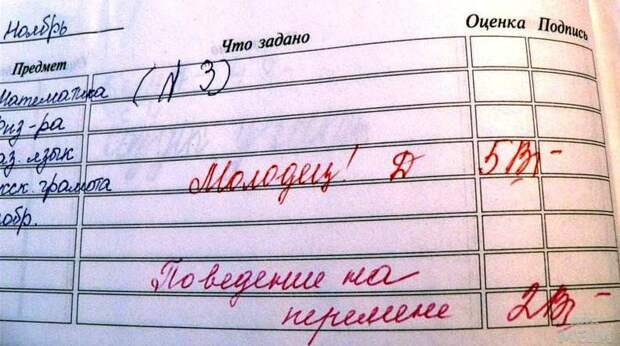 Ноябрь
Предмет Что задано Оценка Подпись
Математика (N 3)
физ-ра
аз. язык
сск. грамота Молодец! 5
обр.
Поведение на
перемене 2